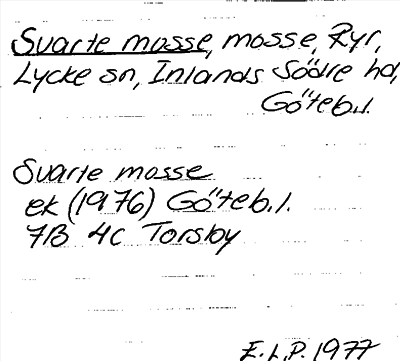 Svarte mosse, mosse, Ryr,
Lycke sn, Inlands Södre hd,
Göteb.l.
Svarte mosse
ek (1976) Göteb.l.
7B 4c Torsby
E.L.P. 1977